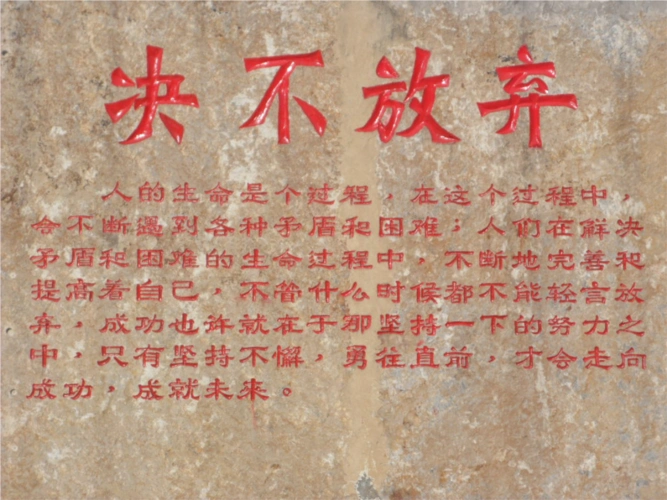 决不放弃
人的生命是个过程，在这个过程中，
会不断遇到各种矛盾和困难；人们在解决
矛盾和困难的生命过程中，不断地完善和
提高着自己，不管什么时候都不能轻言放
弃，成功也许就在于那坚持一下的努力之
中，只有坚持不懈，勇往直前，才会走向
成功，成就未来。